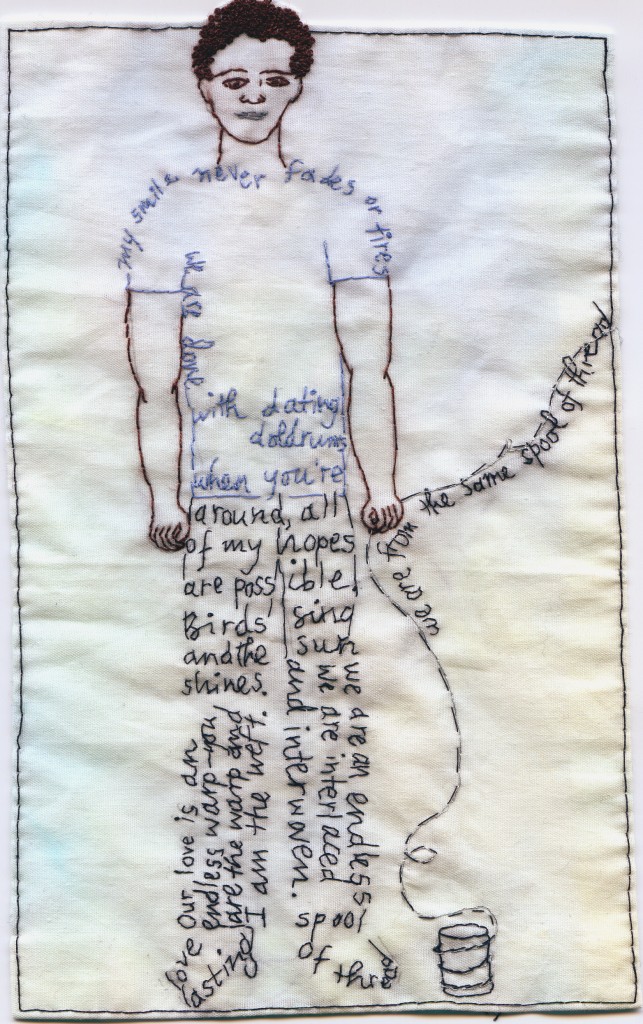 my smile never fades or tires
we are done
with dating
doldrums
when you're
around, all
of my hopes
are possible.
Birds sing
and the sun
shines.
Our love is an
endless warp-you
are the warp and
I am the weft.
love
lasting
we are an endless
we are interlaced
and interwoven.
spool
of thread
we are from the same spool of thread